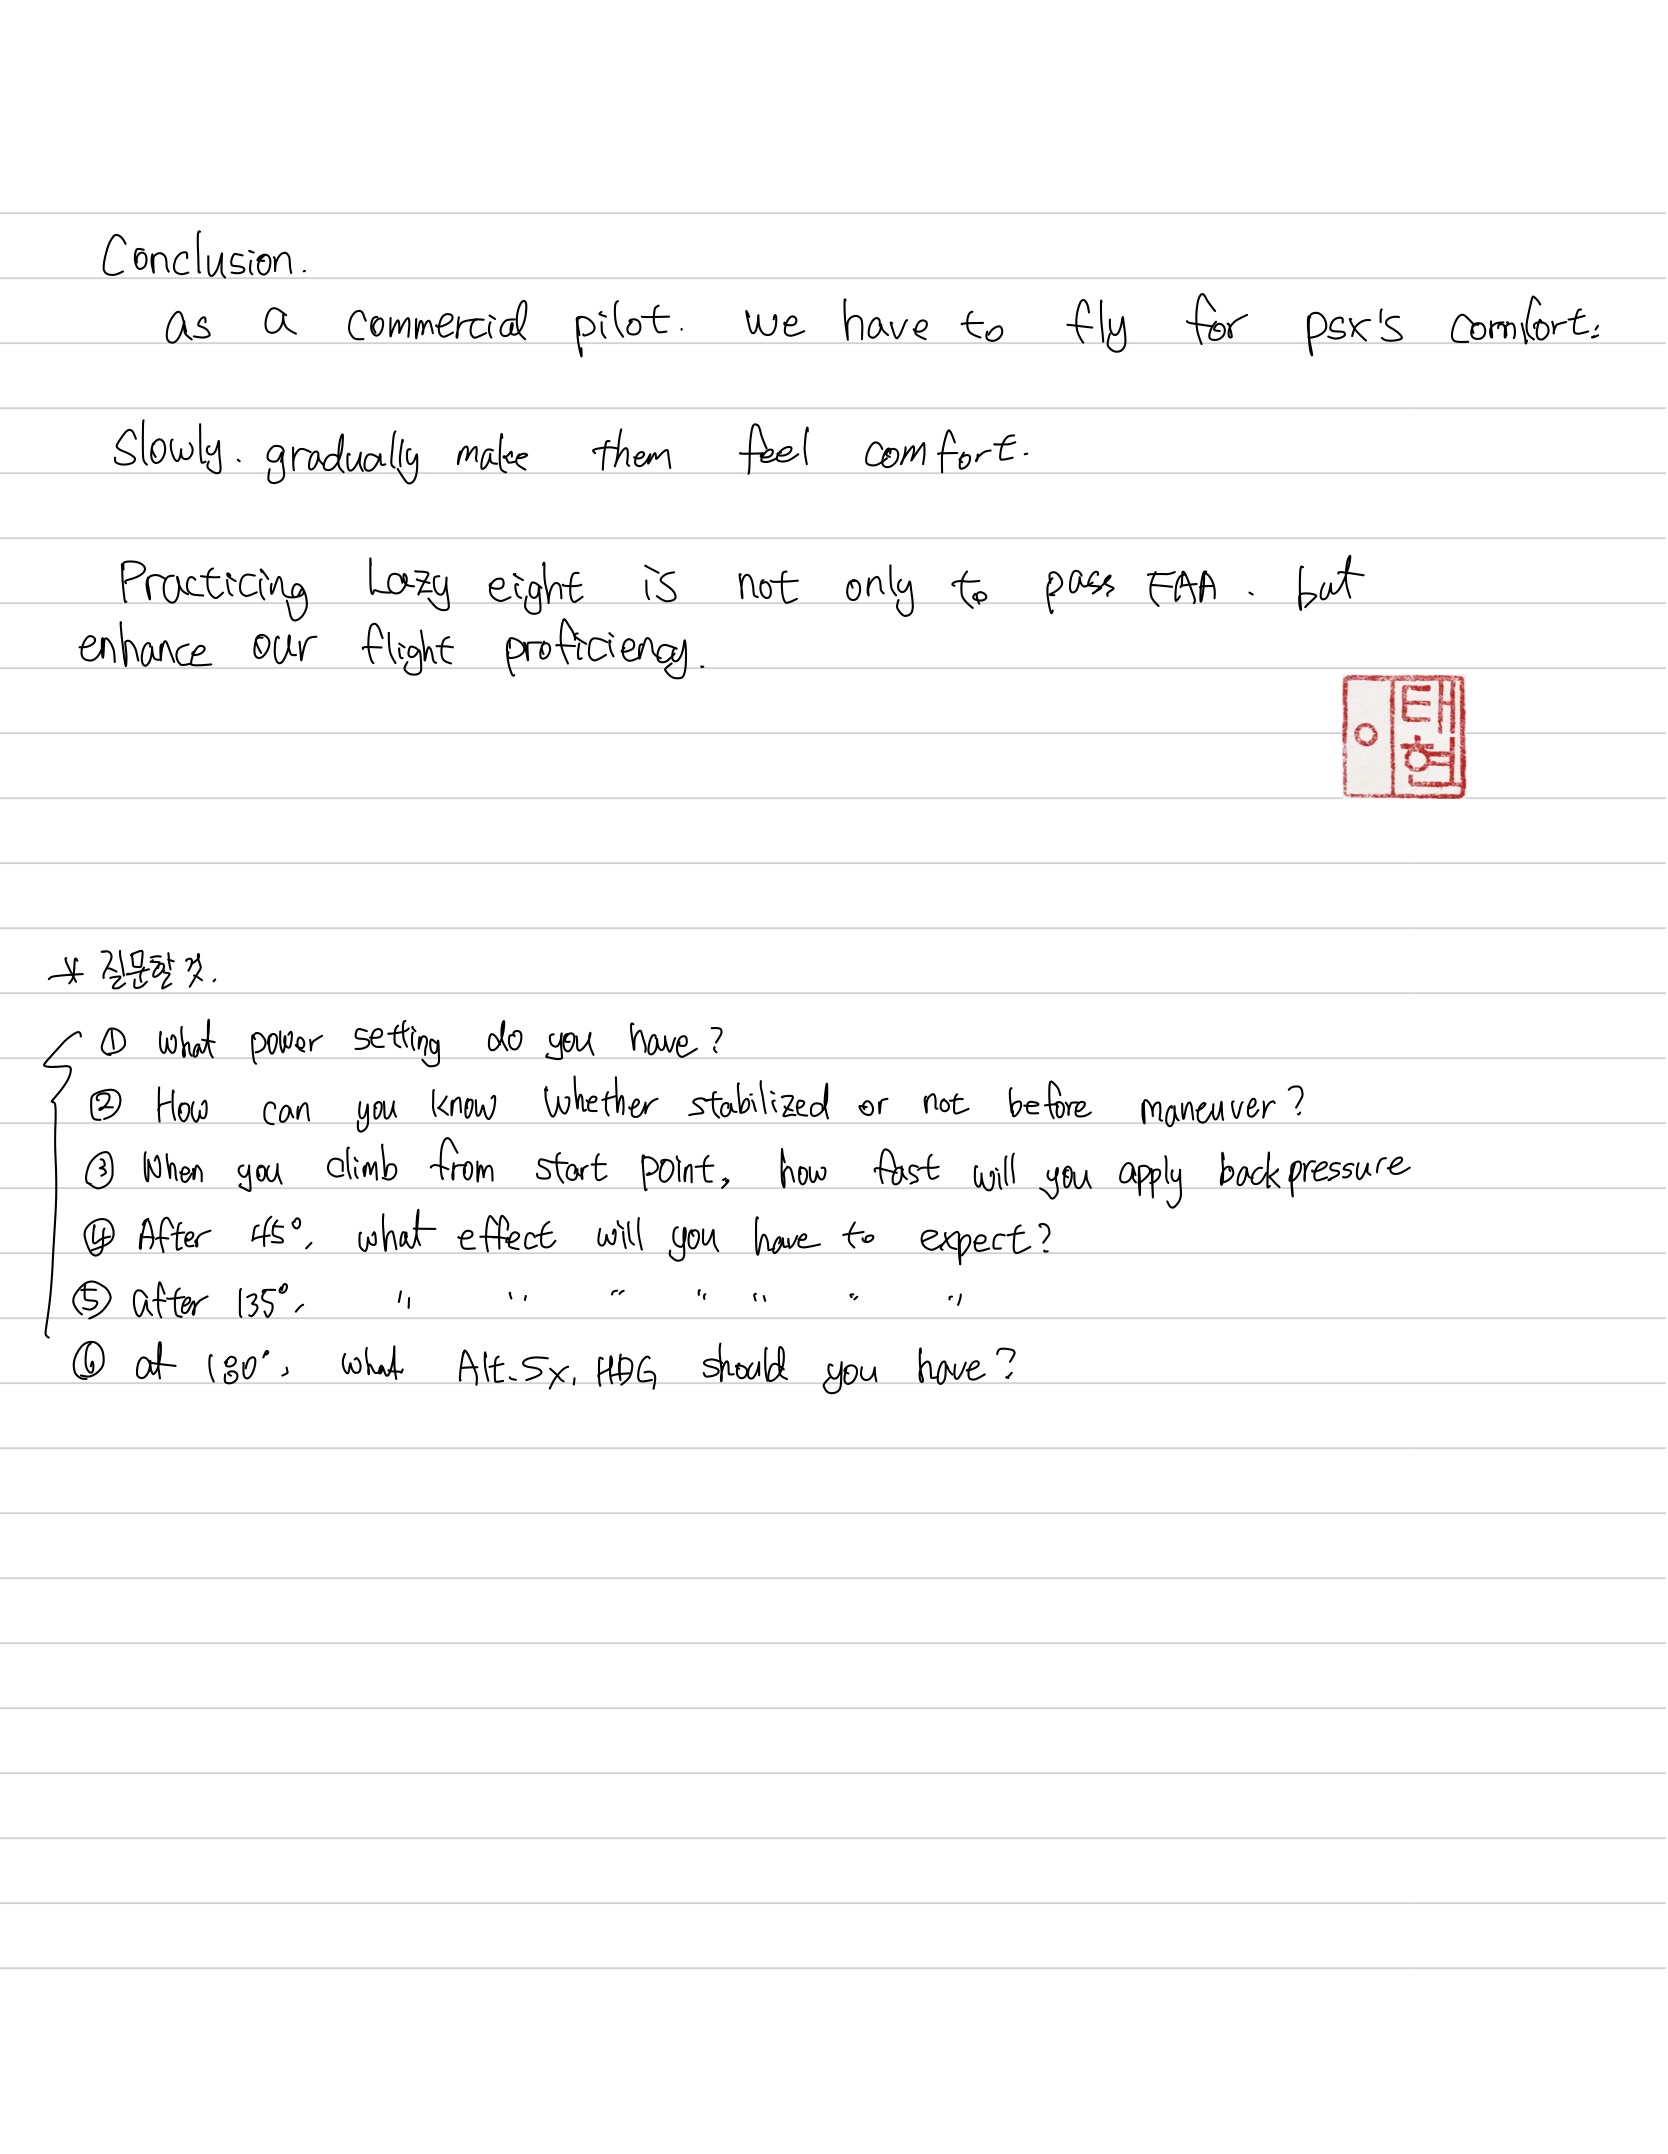 Conclusion.
as a commercial pilot. we have to fly for psx's comfort.
Slowly. gradually make them feel comfort.
Practicing Lazy eight is not only to pass FAA. but
enhance our flight proficiency.
태
현
* 질문할 것.
① what power setting do you have?
② How can you know whether stabilized or not before maneuver?
③ When you climb from start point, how fast will you apply back pressure
④ After 45°, what effect will you have to expect?
⑤ after 135°, " " " " " " "
⑥ at 180°, what Alt. Sx, HDG should you have?